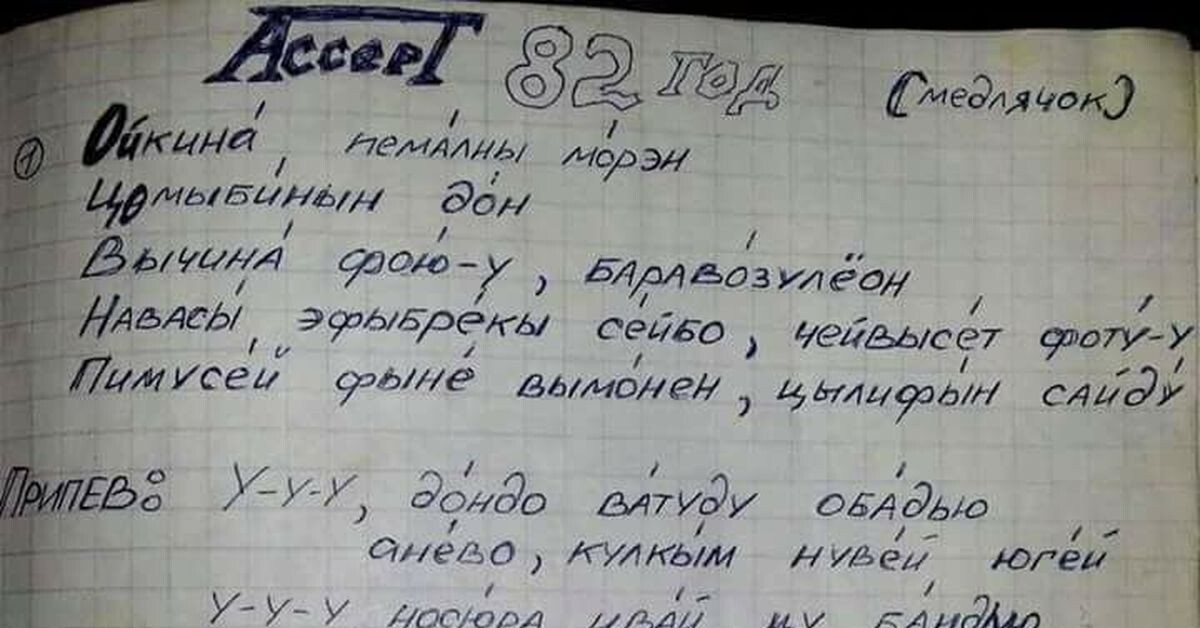 АссерТ 82 год (медлячок)
① Ойкина́, пема́лны мо́рэн
Цомыби́нын до́н
Вычина́ фою́-у, бараво́зулёон
Навасы́ эфыбре́кы се́йбо, чейвысе́т фоту́-у
Пимусе́й фыне́ вымо́нен, цылифы́н сайду́
Припев: У-у-у, до́ндо ва́туду оба́дью
ане́во, кулкы́м нуве́й юге́й
У-у-у носю́ра ива́й ну ба́ндмо